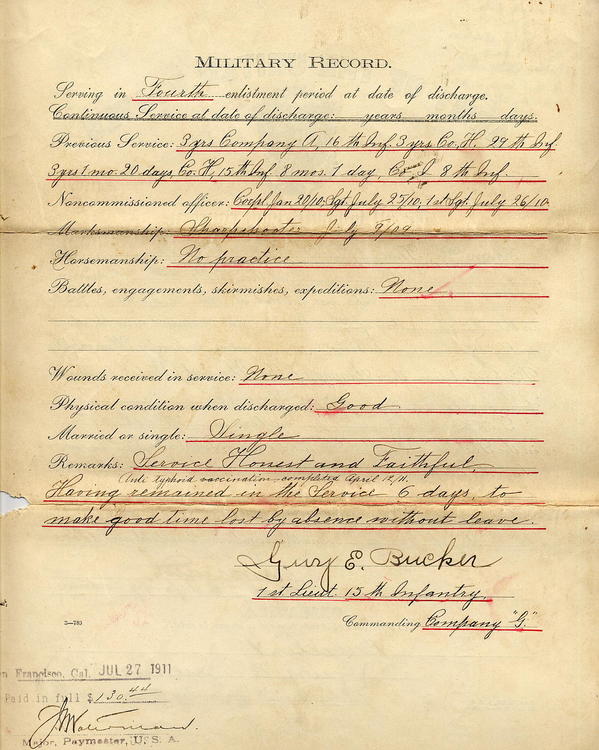 MILITARY RECORD.
Serving in Fourth enlistment period at date of discharge.
Continuous Service at date of discharge: years months days.
Previous Service: 3 yrs Company A, 16th Inf. 3 yrs Co. H, 29th Inf
3 yrs 1 mo. 20 days, Co. H, 15th Inf 8 mos. 1 day, Co. I 8th Inf.
Noncommissioned officer: Corpl. Jan 20/10 Sgt. July 25/10, 1st Sgt. July 26/10
Marksmanship: Sharpshooter July 9/09
Horsemanship: No practice
Battles, engagements, skirmishes, expeditions: None
Wounds received in service: None
Physical condition when discharged: Good
Married or single: Single
Remarks: Service Honest and Faithful
Anti typhoid vaccination completed April 12, 11.
Having remained in the Service 6 days, to
make good time lost by absence without leave.
E. Bucker
1st Lieut. 15th Infantry
Commanding Company "G."
3-783
n Francisco, Cal. JUL 27 1911
Paid in full $130.44
Major, Paymaster, U. S. A.